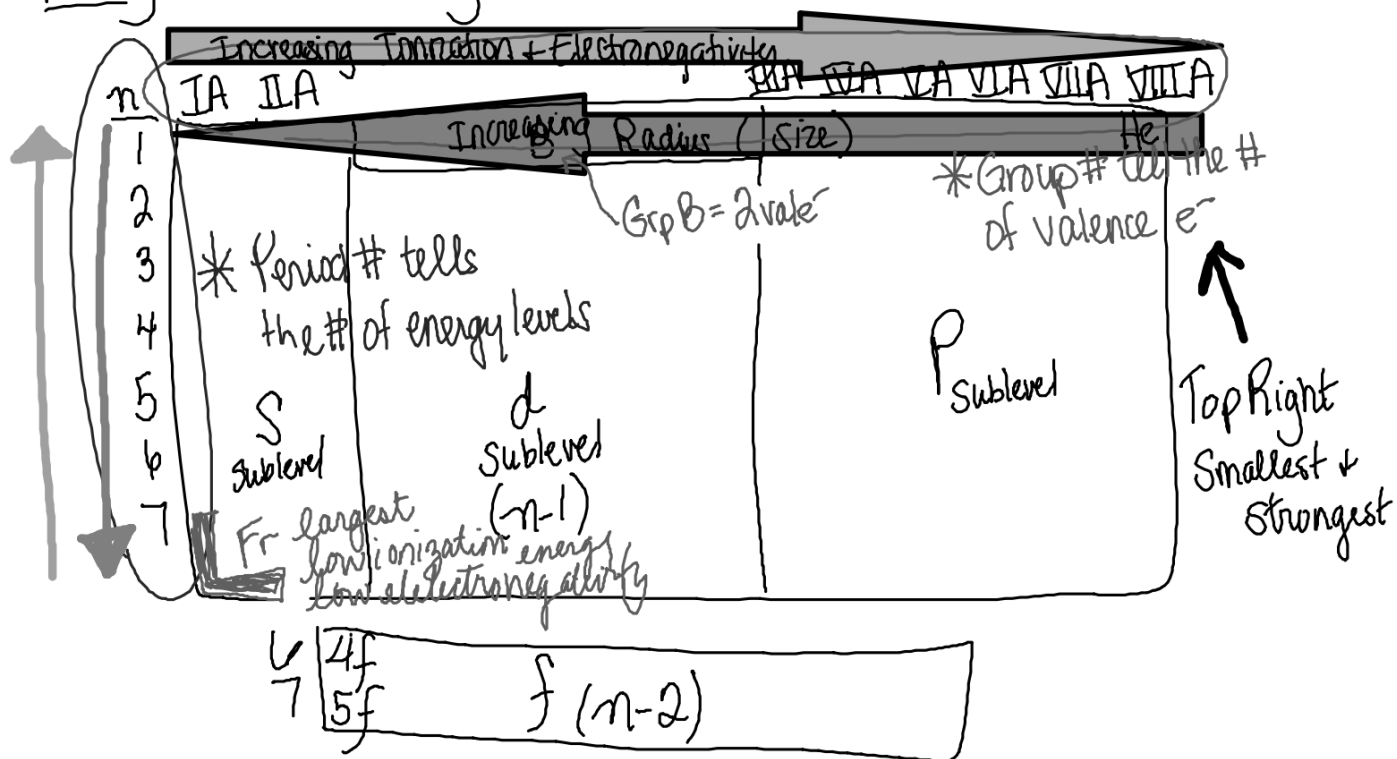 Increasing Ionization + Electronegativity
n IA IIA IIIA IVA VA VIA VIIA VIIIA
1 Increasing Radius (size) He
2 GrpB = 2 val e⁻ *Group # tell the #
of valence e⁻
3 * Period # tells
4 the # of energy levels
5 S d P sublevel
6 sublevel sublevel
7 (n-1)
Top Right
Smallest +
Strongest
Fr largest
low ionization energy
low elelectronegativity
6 4f
7 5f f (n-2)